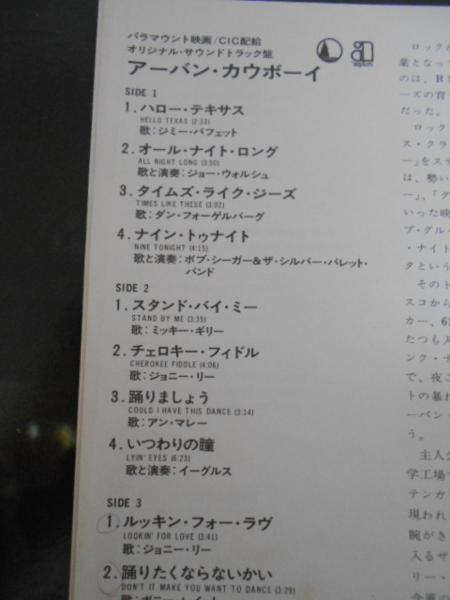 パラマウント映画/CIC配給
オリジナル・サウンドトラック盤
アーバン・カウボーイ
SIDE 1
1.ハロー・テキサス
HELLO TEXAS (2:33)
歌:ジミー・バフェット
2.オール・ナイト・ロング
ALL NIGHT LONG (3:50)
歌と演奏:ジョー・ウォルシュ
3.タイムズ・ライク・ジーズ
TIMES LIKE THESE (3:02)
歌:ダン・フォーゲルバーグ
4.ナイン・トゥナイト
NINE TONIGHT (4:15)
歌と演奏:ボブ・シーガー&ザ・シルバー・バレット・
バンド
SIDE 2
1.スタンド・バイ・ミー
STAND BY ME (3:35)
歌:ミッキー・ギリー
2.チェロキー・フィドル
CHEROKEE FIDDLE (4:06)
歌:ジョニー・リー
3.踊りましょう
COULD I HAVE THIS DANCE (3:14)
歌:アン・マレー
4.いつわりの瞳
LYIN' EYES (6:23)
歌と演奏:イーグルス
SIDE 3
1.ルッキン・フォー・ラヴ
LOOKIN' FOR LOVE (3:41)
歌:ジョニー・リー
2.踊りたくならないかい
DON'T IT MAKE YOU WANT TO DANCE (3:29)
ロックが
葉となって
のは、RS
ーズの育て
だった。
ロック
ス・クラ
ー」をスヤ
は、勢い
ー」、「グ
いった映
ブ・グル
・ナイト
タという
そのト
スコから
カー、6
たつも入
ンク・ナ
で、夜こ
トの暴れ
ーバン・
う。
主人公
学工場で
テンガ
現われ
腕がき
入るザ
リー・